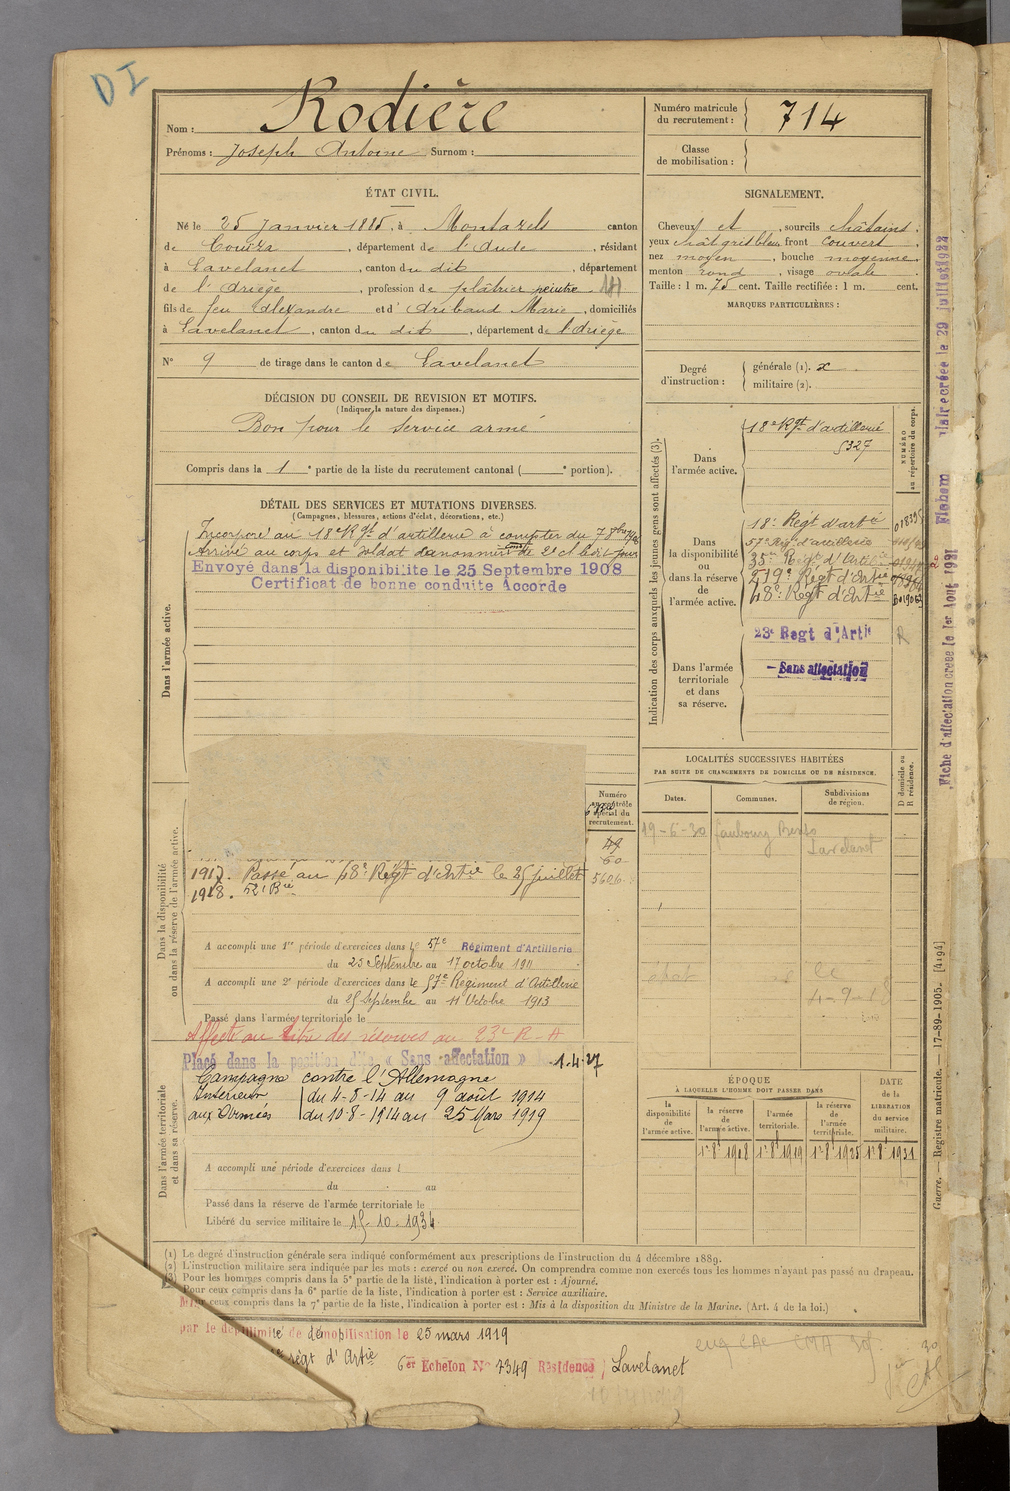 DI
Nom : Rodière
Prénoms : Joseph Antoine Surnom :
Numéro matricule du recrutement : 714
Classe de mobilisation :
ÉTAT CIVIL.
Né le 25 Janvier 1885, à Montazels canton
de Couiza, département de l'Aude, résidant
à Lavelanet, canton du dit, département
de l'Ariège, profession de plâtrier peintre
fils de feu Alexandre et d'Aribaud Marie, domiciliés
à Lavelanet, canton du dit, département de l'Ariège
N° 9 de tirage dans le canton de Lavelanet
SIGNALEMENT.
Cheveux et, sourcils châtains.
yeux chât gris bleu front couvert,
nez moyen, bouche moyenne,
menton rond, visage ovale.
Taille : 1 m. 75 cent. Taille rectifiée : 1 m. cent.
MARQUES PARTICULIÈRES :
Degré d'instruction :
générale (1). x
militaire (2).
DÉCISION DU CONSEIL DE REVISION ET MOTIFS.
(Indiquer la nature des dispenses.)
Bon pour le service armé
Compris dans la 1e partie de la liste du recrutement cantonal ( e portion).
DÉTAIL DES SERVICES ET MUTATIONS DIVERSES.
(Campagnes, blessures, actions d'éclat, décorations, etc.)
Incorporé au 18e Rgt d'artillerie à compter du 7 8bre 1906
Arrivé au corps et soldat canonnier de 2e cl ledit jour
Envoyé dans la disponibilité le 25 Septembre 1908
Certificat de bonne conduite Accorde
Dans l'armée active.
Indication des corps auxquels les jeunes gens sont affectés (3).
NUMÉRO au répertoire du corps.
Dans l'armée active.
18e Rgt d'artillerie
5327
Dans la disponibilité ou dans la réserve de l'armée active.
18e Régt d'artie
57e Rég d'artillerie
35e Régt d'Artie
219e Régt d'Artie
48e Régt d'Artie
23e Regt d'Artie
R
Dans l'armée territoriale et dans sa réserve.
- Sans affectation
LOCALITÉS SUCCESSIVES HABITÉES
PAR SUITE DE CHANGEMENTS DE DOMICILE OU DE RÉSIDENCE.
D domicile ou R résidence.
Dates. Communes. Subdivisions de région.
19-6-30 faubourg
Lavelanet
4-9-18
Dans la disponibilité ou dans la réserve de l'armée active.
Numéro au contrôle spécial du recrutement.
49
60
5606
1917. Passé au 48e Régt d'Artie le 25 juillet
1918. 52e Bie
A accompli une 1re période d'exercices dans le 57e Régiment d'Artillerie
du 25 Septembre au 17 octobre 1911
A accompli une 2e période d'exercices dans le 57e Régiment d'Artillerie
du 25 Septembre au 11 Octobre 1913
Passé dans l'armée territoriale le
Affecté au des réserves au 23e R-A
Placé dans la position dite « Sans affectation » 1-4-27
Dans l'armée territoriale et dans sa réserve.
Campagne contre l'Allemagne
Intérieur du 4-8-14 au 9 août 1914
aux Armées du 10-8-1914 au 25 Mars 1919
A accompli une période d'exercices dans l
du au
Passé dans la réserve de l'armée territoriale le
Libéré du service militaire le 15-10-1934
ÉPOQUE
À LAQUELLE L'HOMME DOIT PASSER DANS
DATE de la LIBÉRATION du service militaire.
la disponibilité de l'armée active.
la réserve de l'armée active.
l'armée territoriale.
la réserve de l'armée territoriale.
1er 8bre 1908
1er 8bre 1919
1er 8bre 1925
1er 8bre 1931
(1) Le degré d'instruction générale sera indiqué conformément aux prescriptions de l'instruction du 4 décembre 1889.
(2) L'instruction militaire sera indiquée par les mots : exercé ou non exercé. On comprendra comme non exercés tous les hommes n'ayant pas passé au drapeau.
(3) Pour les hommes compris dans la 5e partie de la liste, l'indication à porter est : Ajourné.
Pour ceux compris dans la 6e partie de la liste, l'indication à porter est : Service auxiliaire.
Pour ceux compris dans la 7e partie de la liste, l'indication à porter est : Mis à la disposition du Ministre de la Marine. (Art. 4 de la loi.)
par le dépôt démobilisation le 25 mars 1919
régt d'Artie 6er Echelon N° 7349 Résidence Lavelanet
Guerre. — Registre matricule. — 17-89-1905. [4194]
Fiche d'affectation créée le 1er Août 1931
créée le 29 juillet 1922